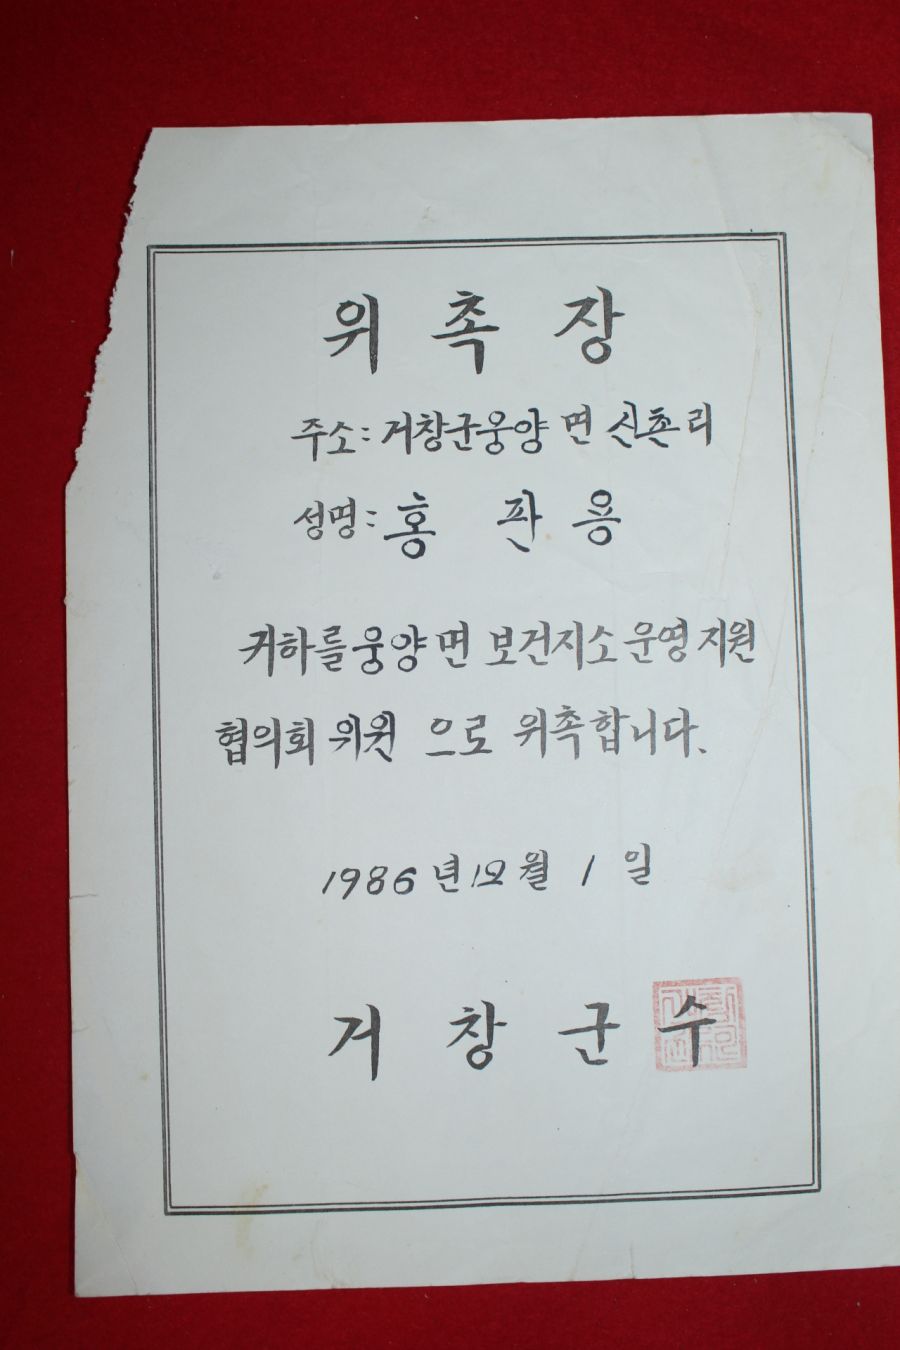 위 촉 장
주소: 거창군웅양 면 신촌리
성명: 홍 판 용
귀하를 웅양 면 보건지소 운영 지원
협의회 위원 으로 위촉합니다.
1986년 12월 1 일
거 창 군 수